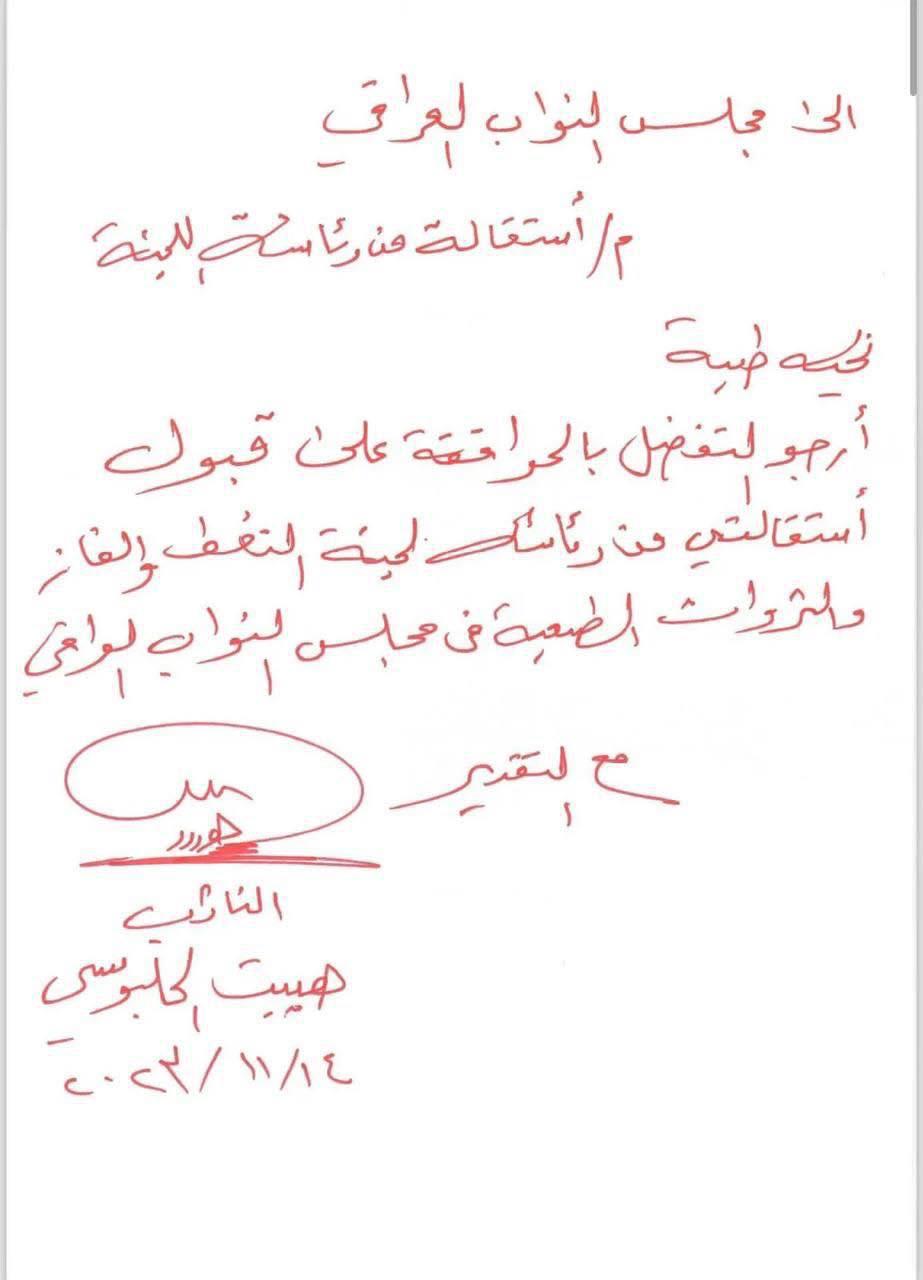 الى مجلس النواب العراقي
م/ أستقالة من رئاسة اللجنة
تحية طيبة
أرجو التفضل بالموافقة على قبول
أستقالتي من رئاسة لجنة النفط والغاز
والثروات الطبيعية في مجلس النواب العراقي
مع التقدير
النائب
هيبت الحلبوسي
٢٠٢٣/١١/١٤